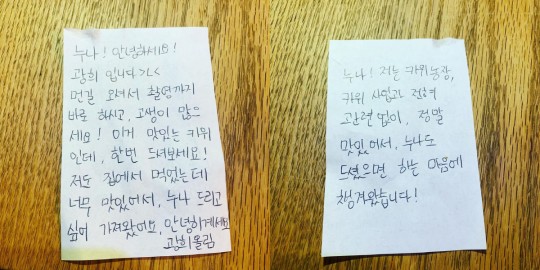 누나! 안녕하세요!
광희 입니다>ㅅ<
먼길 오셔서 촬영까지
바로 하시고, 고생이 많으
세요! 이거 맛있는 키위
인데, 한번 드셔보세요!
저도 집에서 먹었는데
너무 맛있어서, 누나 드리고
싶어 가져왔어요, 안녕히계세요
광희올림
누나! 저는 키위농장,
키위 사업과 전혀
관련 없이, 정말
맛있어서, 누나도
드셨으면 하는 마음에
챙겨왔습니다!